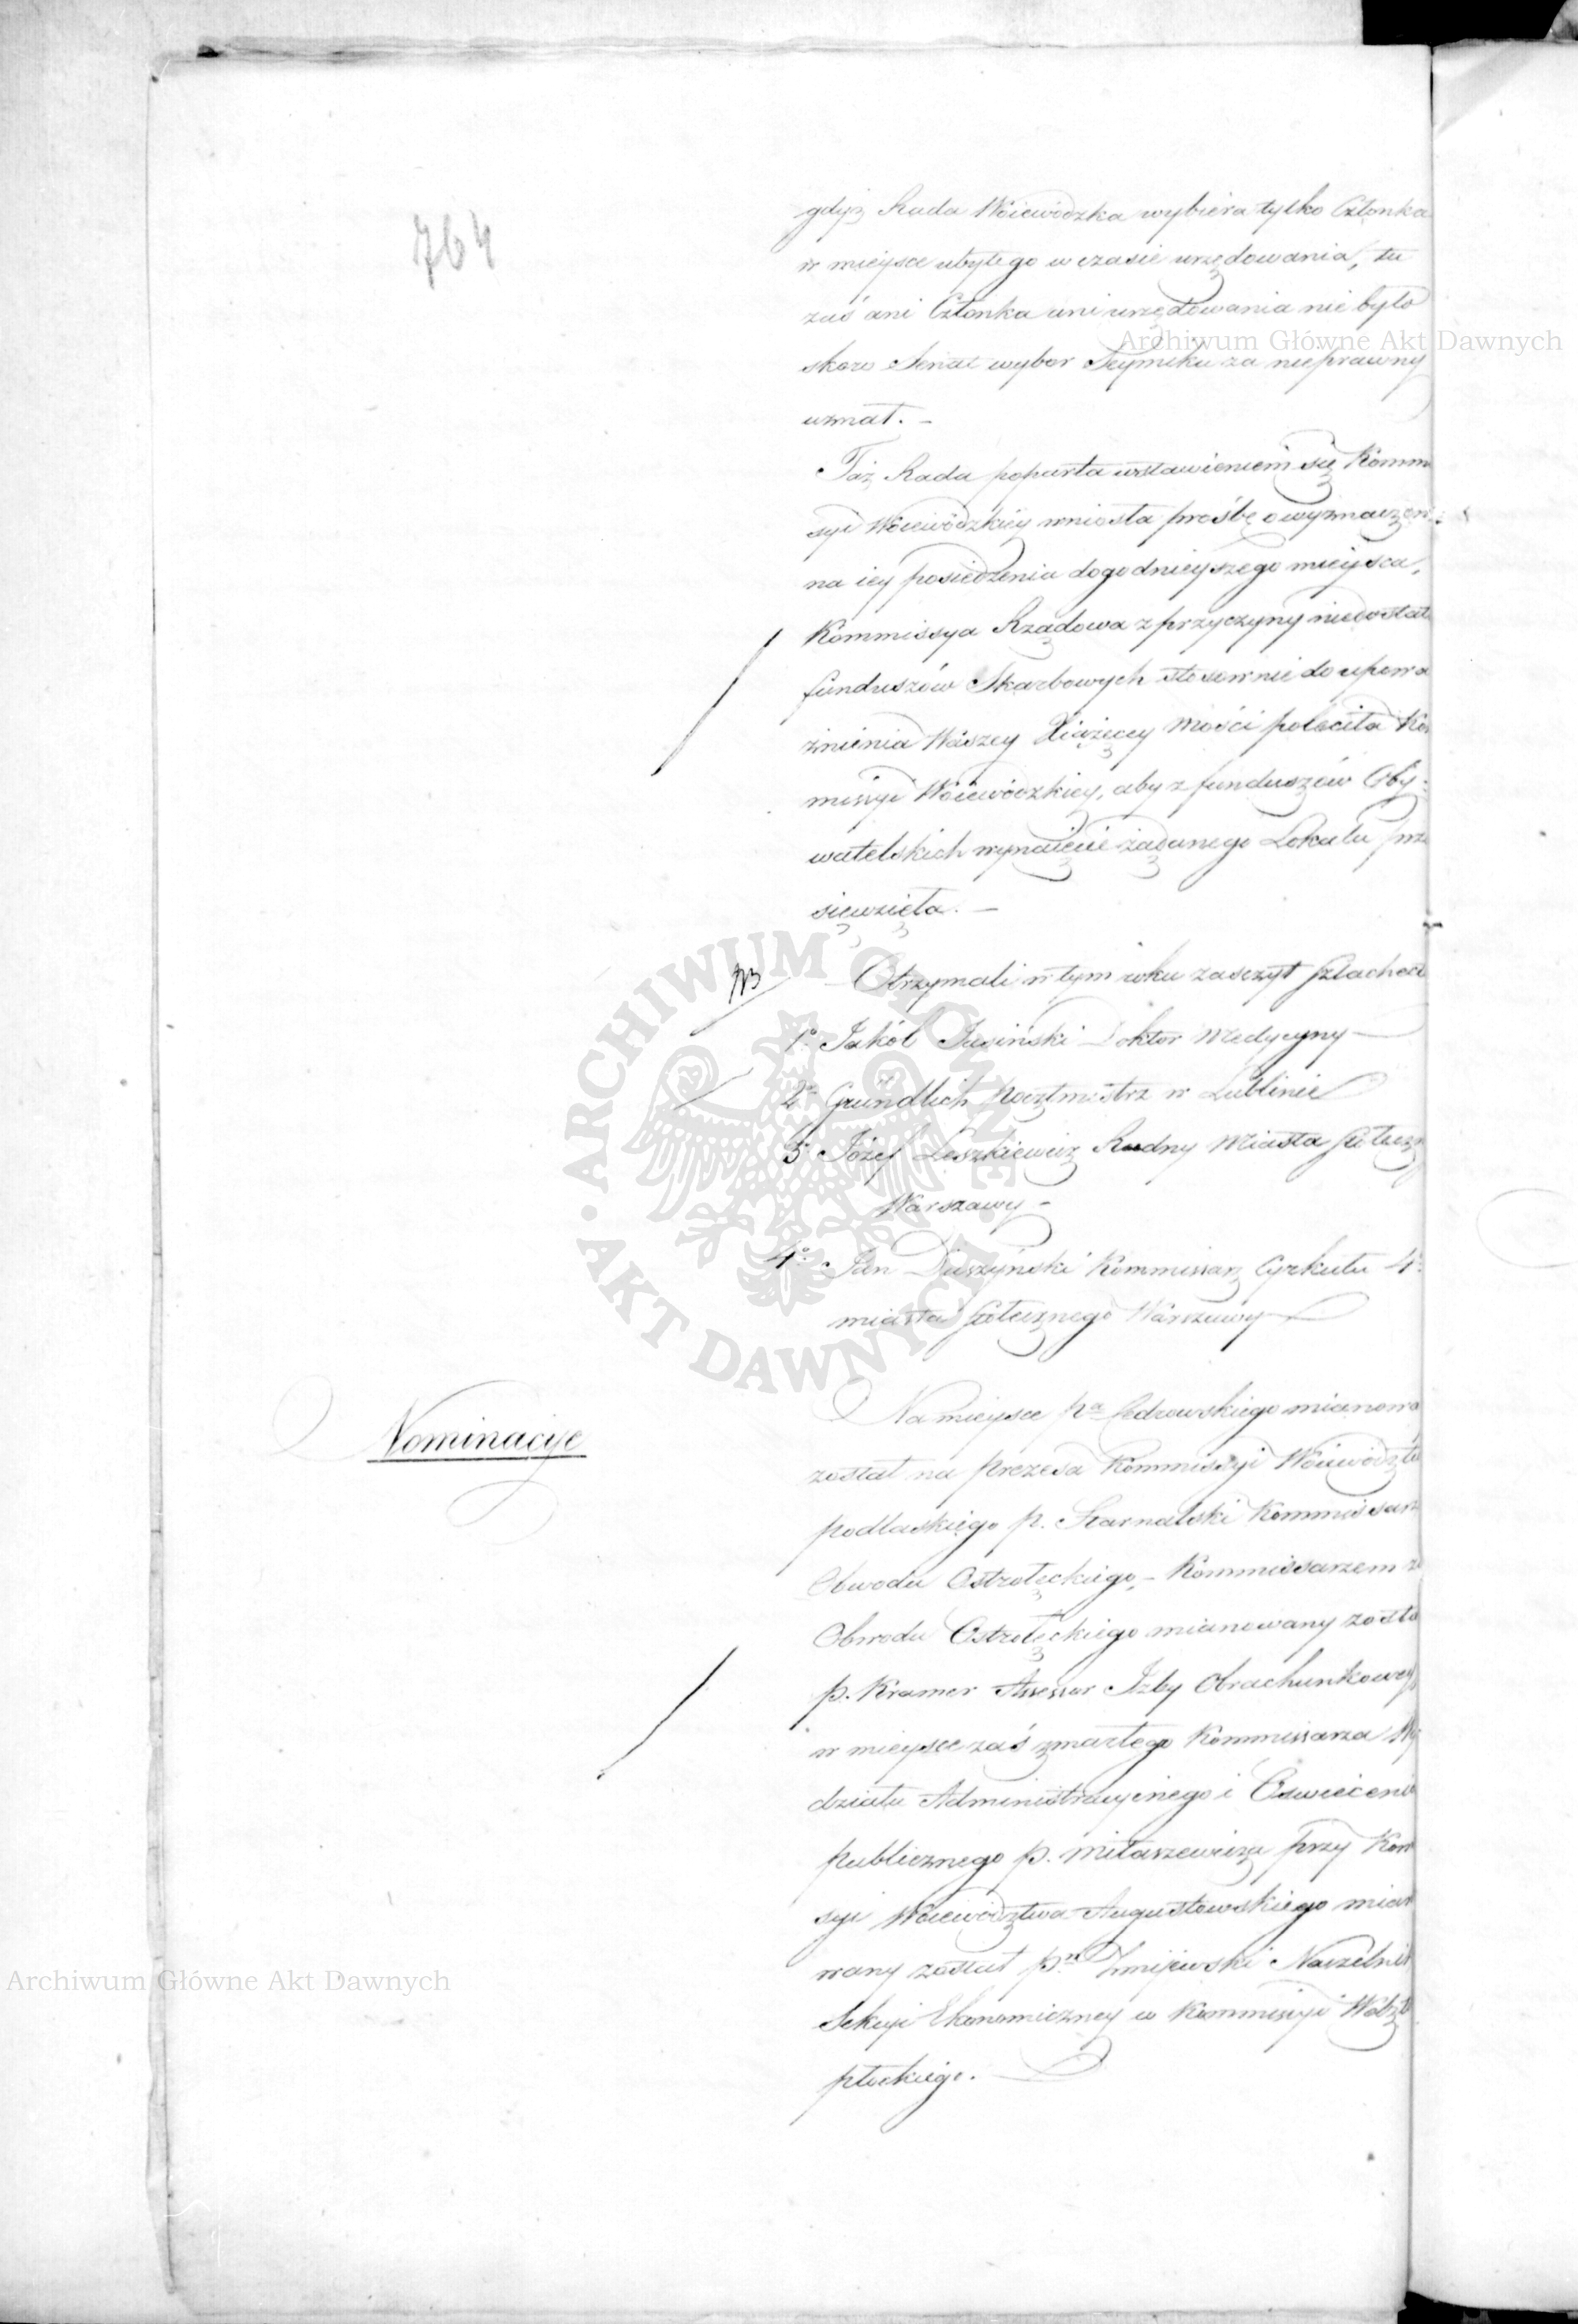 764
gdyż Rada Woiewódzka wybiera tylko Członka
w mieysce ubyłego w czasie urzędowania, tu
zaś ani Członka ani urzędowania nie było
skoro Senat wybor Seymiku za nieprawny
uznał. –
Taż Rada poparta wstawieniem się Komm
syi Woiewódzkiey wniosła prośbę o wyznaczen
na iey posiedzenia dogodnieyszego mieysca,
Kommissya Rządowa z przyczyny niedostat
funduszów Skarbowych stosownie do upowa
żnienia Waszey Xiążęcey Mości poleciła Kom
missyi Woiewódzkiey, aby z funduszów Oby:
watelskich wynaięcie żądanego Lokalu prze
sięwzięła. –
NB Otrzymali w tym roku zaszczyt szlachect
1° Jakób Jasiński Doktor Medycyny –
2° Gründlich Pocztmistrz w Lublinie
3° Józef Leszkiewicz Radny Miasta Stołeczn
Warszawy –
4° Jan Daszyński Kommissarz Cyrkułu 4°
miasta Stołecznego Warszawy
Nominacye
Na mieysce Pa mianowa
został na Prezesa Kommissyi Woiewództ
Podlaskiego P. Kommissarz
Obwodu Ostrołęckiego, – Kommissarzem za
Obwodu Ostrołęckiego mianowany zosta
P. Kramer Assessor Izby Obrachunkowey,
w mieysce zaś zmarłego Kommissarza Wy
działu Administracyinego i Oświecenia
publicznego P. Miłaszewicza przy Kom
syi Woiewództwa Augustowskiego miano
wany został Pn Żmijewski Naczelnik
Sekcyi Ekonomiczney w Kommissyi Wdztwa
Płockiego.
Archiwum Główne Akt Dawnych
ARCHIWUM GŁÓWNE · AKT DAWNYCH ·
Archiwum Główne Akt Dawnych